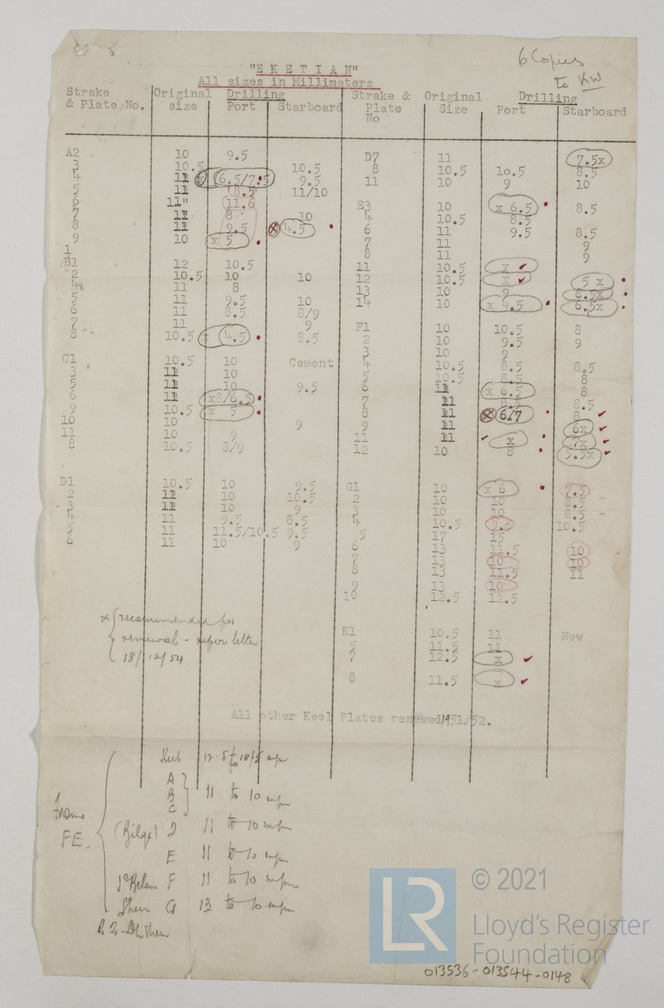 6 Copies
to KW
"EKETIAN"
All sizes in Millimeters
Strake & Plate No. Original size Drilling Port Starboard
A2 10 9.5
3 10.5 10.5
4 11 x 6.5/7.5 9.5
5 11 8.5 11/10
6 11" 11.6
7 11 8. 10
8 11 9.5 x 4.5
9 10 x 5
1
B1 12 10.5
2 10.5 10 10
4 11 8
5 11 9.5 10
6 11 8.5 8/9
7 11 9
8 10.5 x 4.5 8.5
C1 10.5 10 Cement
3 11 10
5 11 10 9.5
6 11 x8/6.5
9 10.5 x 5
10 10 9
11 10 9
8 10.5 8/9
D1 10.5 10 9.5
2 11 10 10.5
3 11 10 9
4 11 9.5 8.5
5 11 11.5/10.5 9.5
6 11 10 9
Strake & Plate No Original Size Drilling Port Starboard
D7 11 7.5x
8 10.5 10.5 8.5
11 10 9 10
E3 10 x 6.5 8.5
4 10.5 8.5
6 11 9.5 8.5
7 11 9
8 11 9
11 10.5 x
12 10.5 x 5 x
13 10 9 6.5x
14 10 x 4.5 6.5x
F1 10 10.5 8
2 10 9.5 9
3 10 9
4 10.5 8.5 8.5
5 10.5 8.5 8
6 11 x 6.5 8
7 11 8.5 8.5
8 11 x 6/7 8
9 11 6x
11 11 x 7x
12 10 8 5.5x
G1 10 x 6 7.5
2 10 10 8.5
3 10 10 8.5
4 10.5 9.4 10.5
5 17 15
6 13 11.5 10
7 13 10 10
8 13 11.5 11
9 13 10
10 12.5 12.5
K1 10.5 11 New
5 11.5 11
7 12.5 x
8 11.5 x
x recommended for
renewal - as per letter
18/12/54
All other Keel Plates renewed 1951/52.
Keel 12.5 to 10.5 mm
A
B 11 to 10 mm
C
From
FE.
(Bilge) D 11 to 10 mm
E 11 to 10 mm
Str Below F 11 to 10 mm
Sheer G 13 to 10 mm
© 2021
LR
Lloyd's Register
Foundation
013536-013544-0148